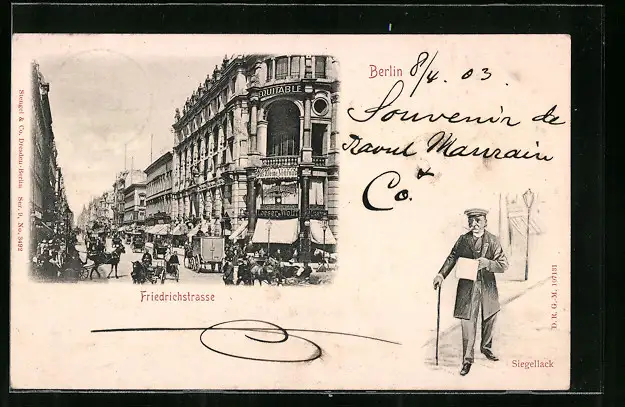 Berlin 8/4 03.
Souvenir de
Raoul Manrain
Co.
EQUITABLE
Friedrichstrasse
Stengel & Co., Dresden-Berlin Ser. 9, No. 3492
D. R. G.-M. 107131
Siegellack